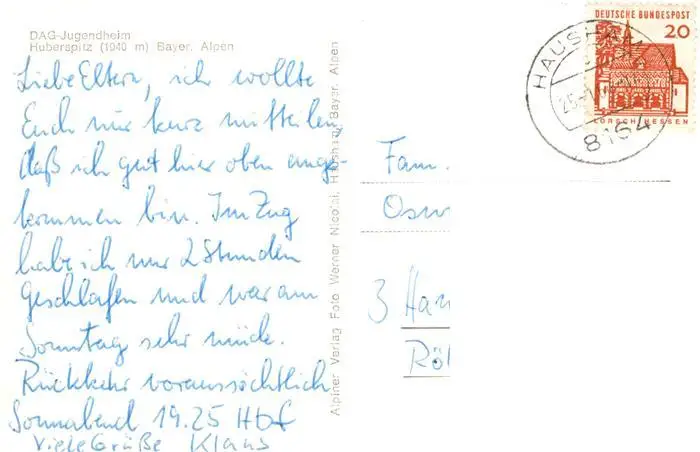 DAG-Jugendheim
Huberspitz (1040 m) Bayer. Alpen
Liebe Eltern, ich wollte
Euch nur kurz mitteilen,
daß ich gut hier oben ange-
kommen bin. Im Zug
habe ich nur 2 Stunden
geschlafen und war am
Sonntag sehr müde.
Rückkehr voraussichtlich
Sonnabend 19.25 Hbf
Viele Grüße Klaus
Alpiner Verlag Foto Werner Nicolai, Hausham/Bayer. Alpen
DEUTSCHE BUNDESPOST
20
LORSCH/HESSEN
HAUSHAM
8164
Fam.
Osw
3 Han
Röl